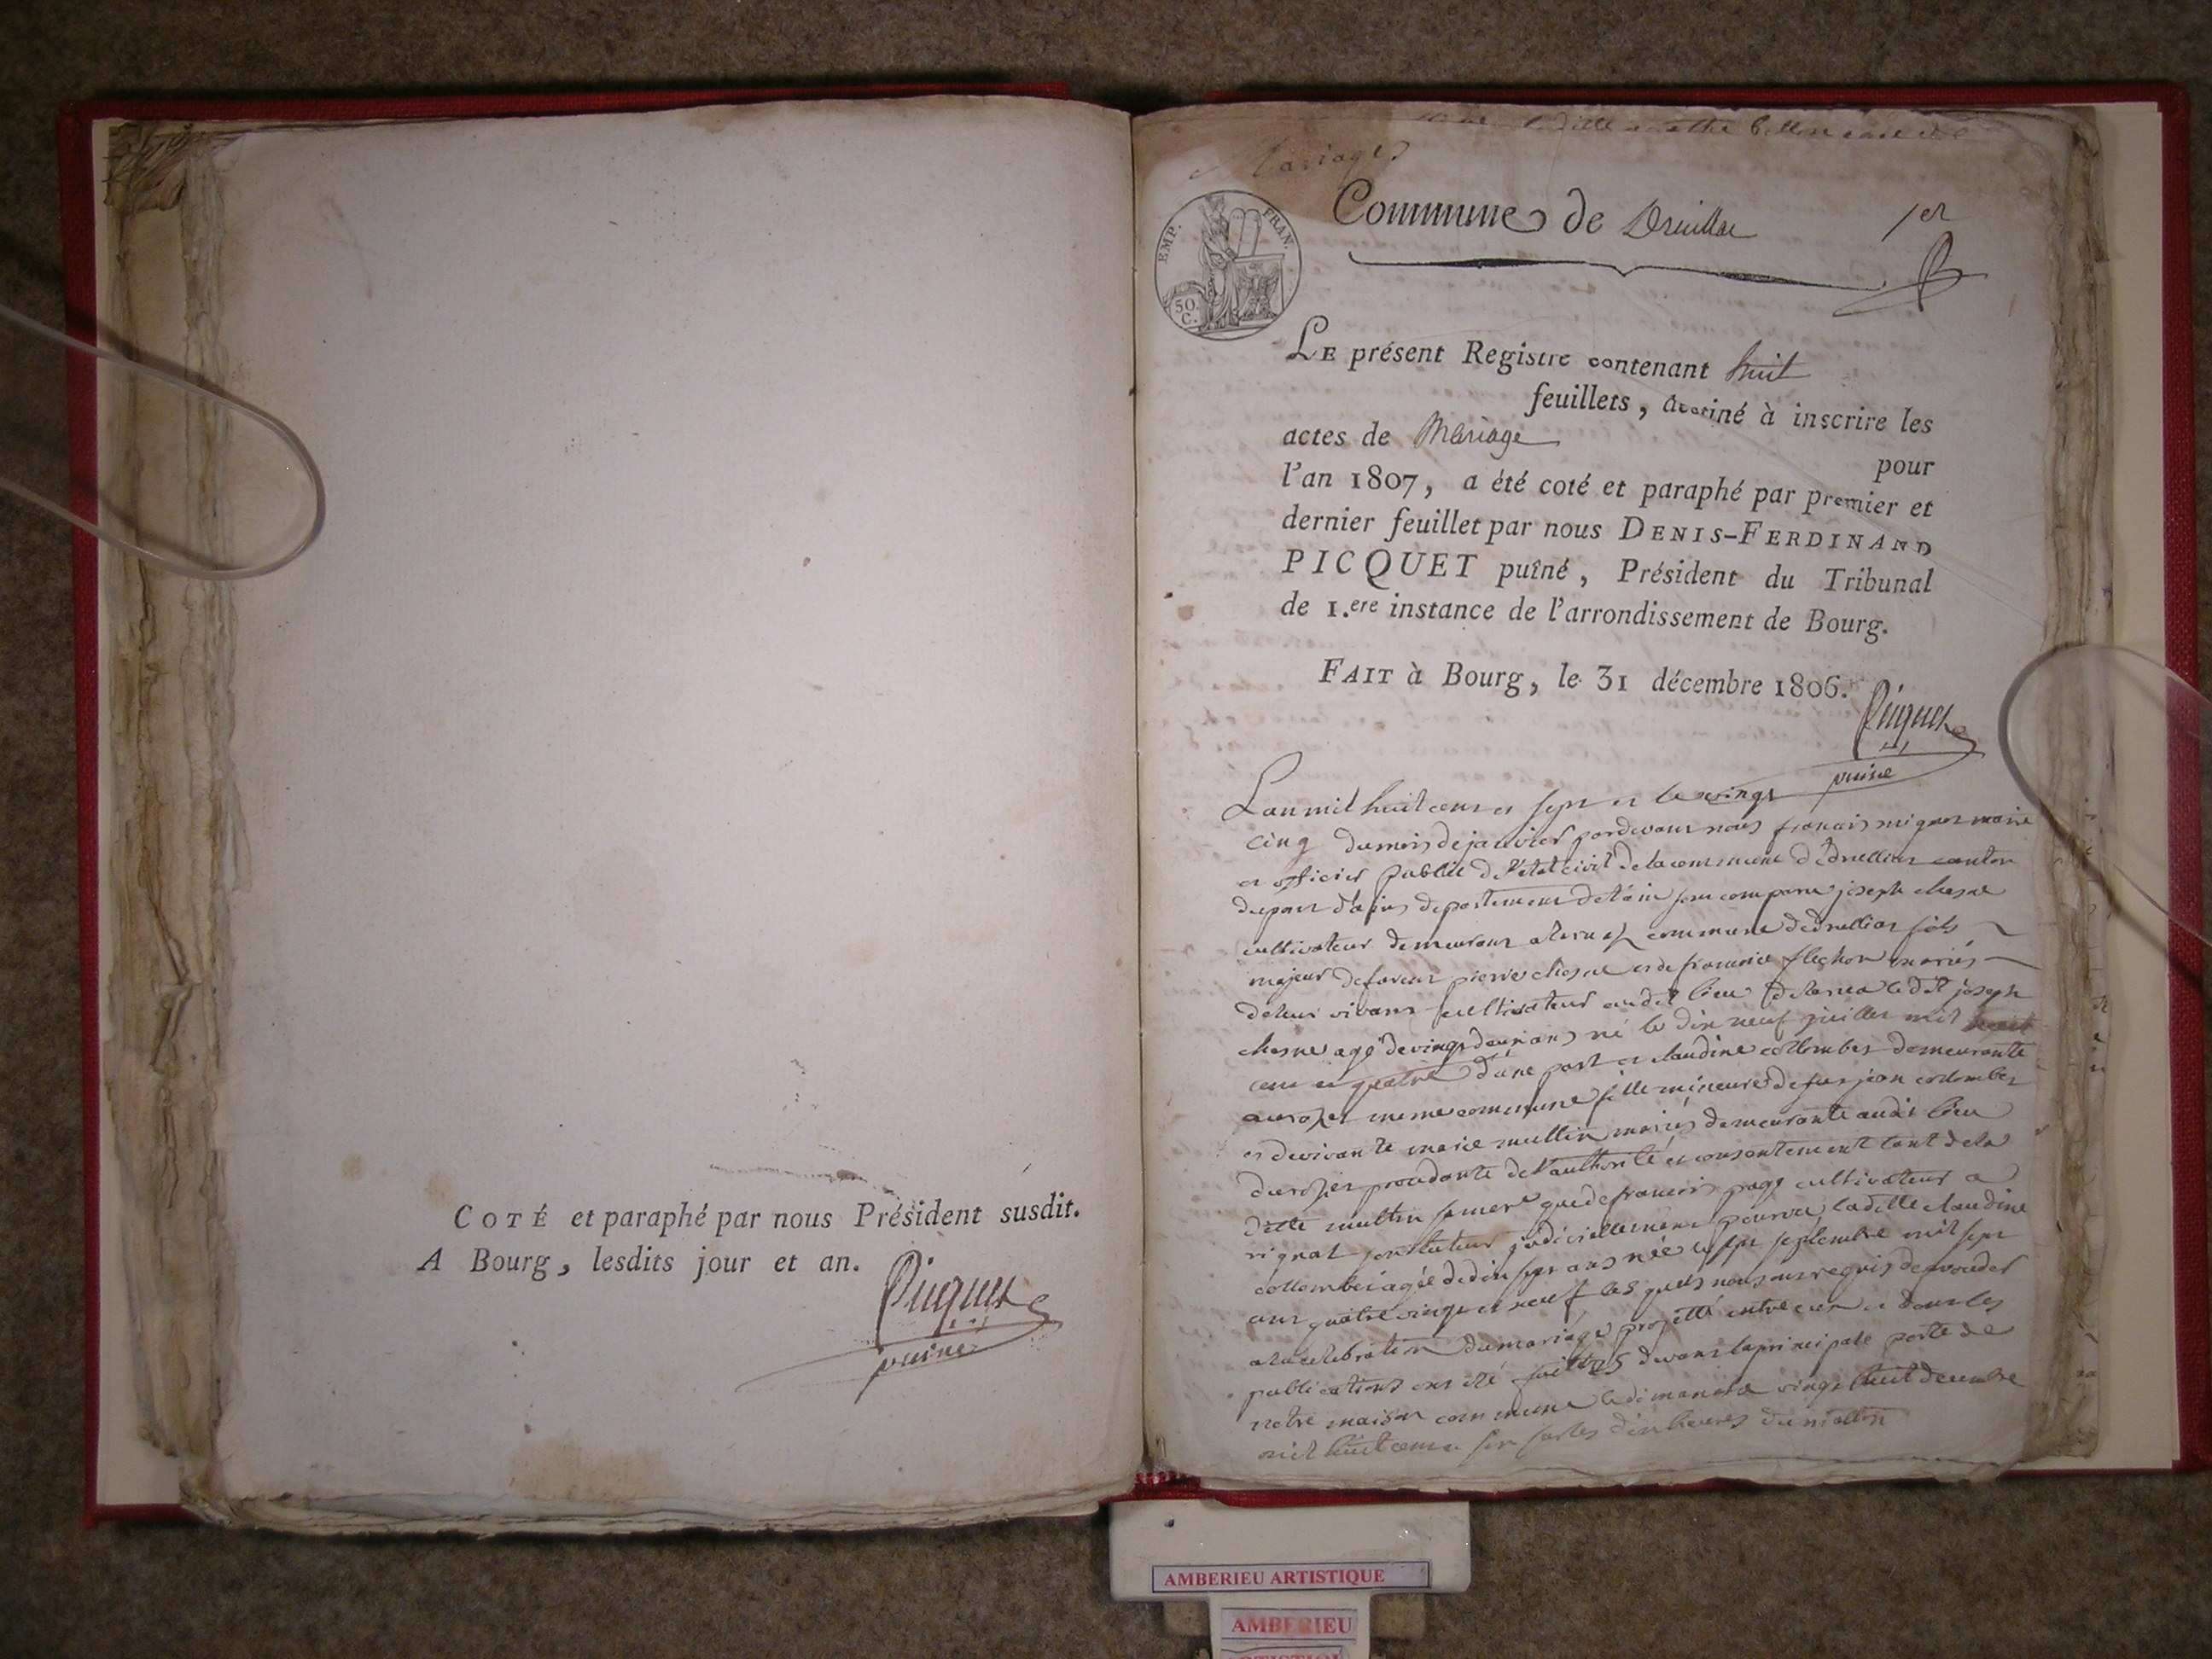 COTÉ et paraphé par nous Président susdit.
A Bourg, lesdits jour et an.
Picquet
puiné
Mariages
Commune de Druillac
1er
EMP. FRAN.
50
C.
LE présent Registre contenant huit
feuillets, destiné à inscrire les
actes de Mariage
pour
l'an 1807, a été coté et paraphé par premier et
dernier feuillet par nous DENIS-FERDINAND
PICQUET puîné, Président du Tribunal
de 1.ere instance de l'arrondissement de Bourg.
FAIT à Bourg, le 31 décembre 1806.
Picquet
puiné
Lan mil huit cent et sept et le vingt
cinq du mois de janvier pardevant nous francois mignot maire
et officier public de l'etat civil de la commune canton
du pont d'ain departement de lain sont comparu joseph chesne
cultivateur demeurant a commune fils
majeur de pierre chesne et de francoise mariés
vivant cultivateur audit lieu ledit joseph
chesne agé de vingt deux ans né le dix neuf juillet mil
cent quatre d'une part et claudine collombet demeurante
meme commune fille mineure de feu jean collombet
et de vivante marie mullin mariés demeurante audit lieu
du procedante de l'authorité et consentement tant de la
ditte mullin sa mere que de francois page cultivateur a
rignat son tuteur judiciellement pourvu ladille claudine
collombet agée de dix sept ans née le sept septembre mil sept
cent quatre vingt et neuf les quels nous ont requis de proceder
a la celebration du mariage projetté entre eux et dont les
publications ont été faittes devant la principale porte de
notre maison commune le dimanche vingt huit decembre
mil huit cent six sur les dix heures du mattin
AMBERIEU ARTISTIQUE
AMBERIEU